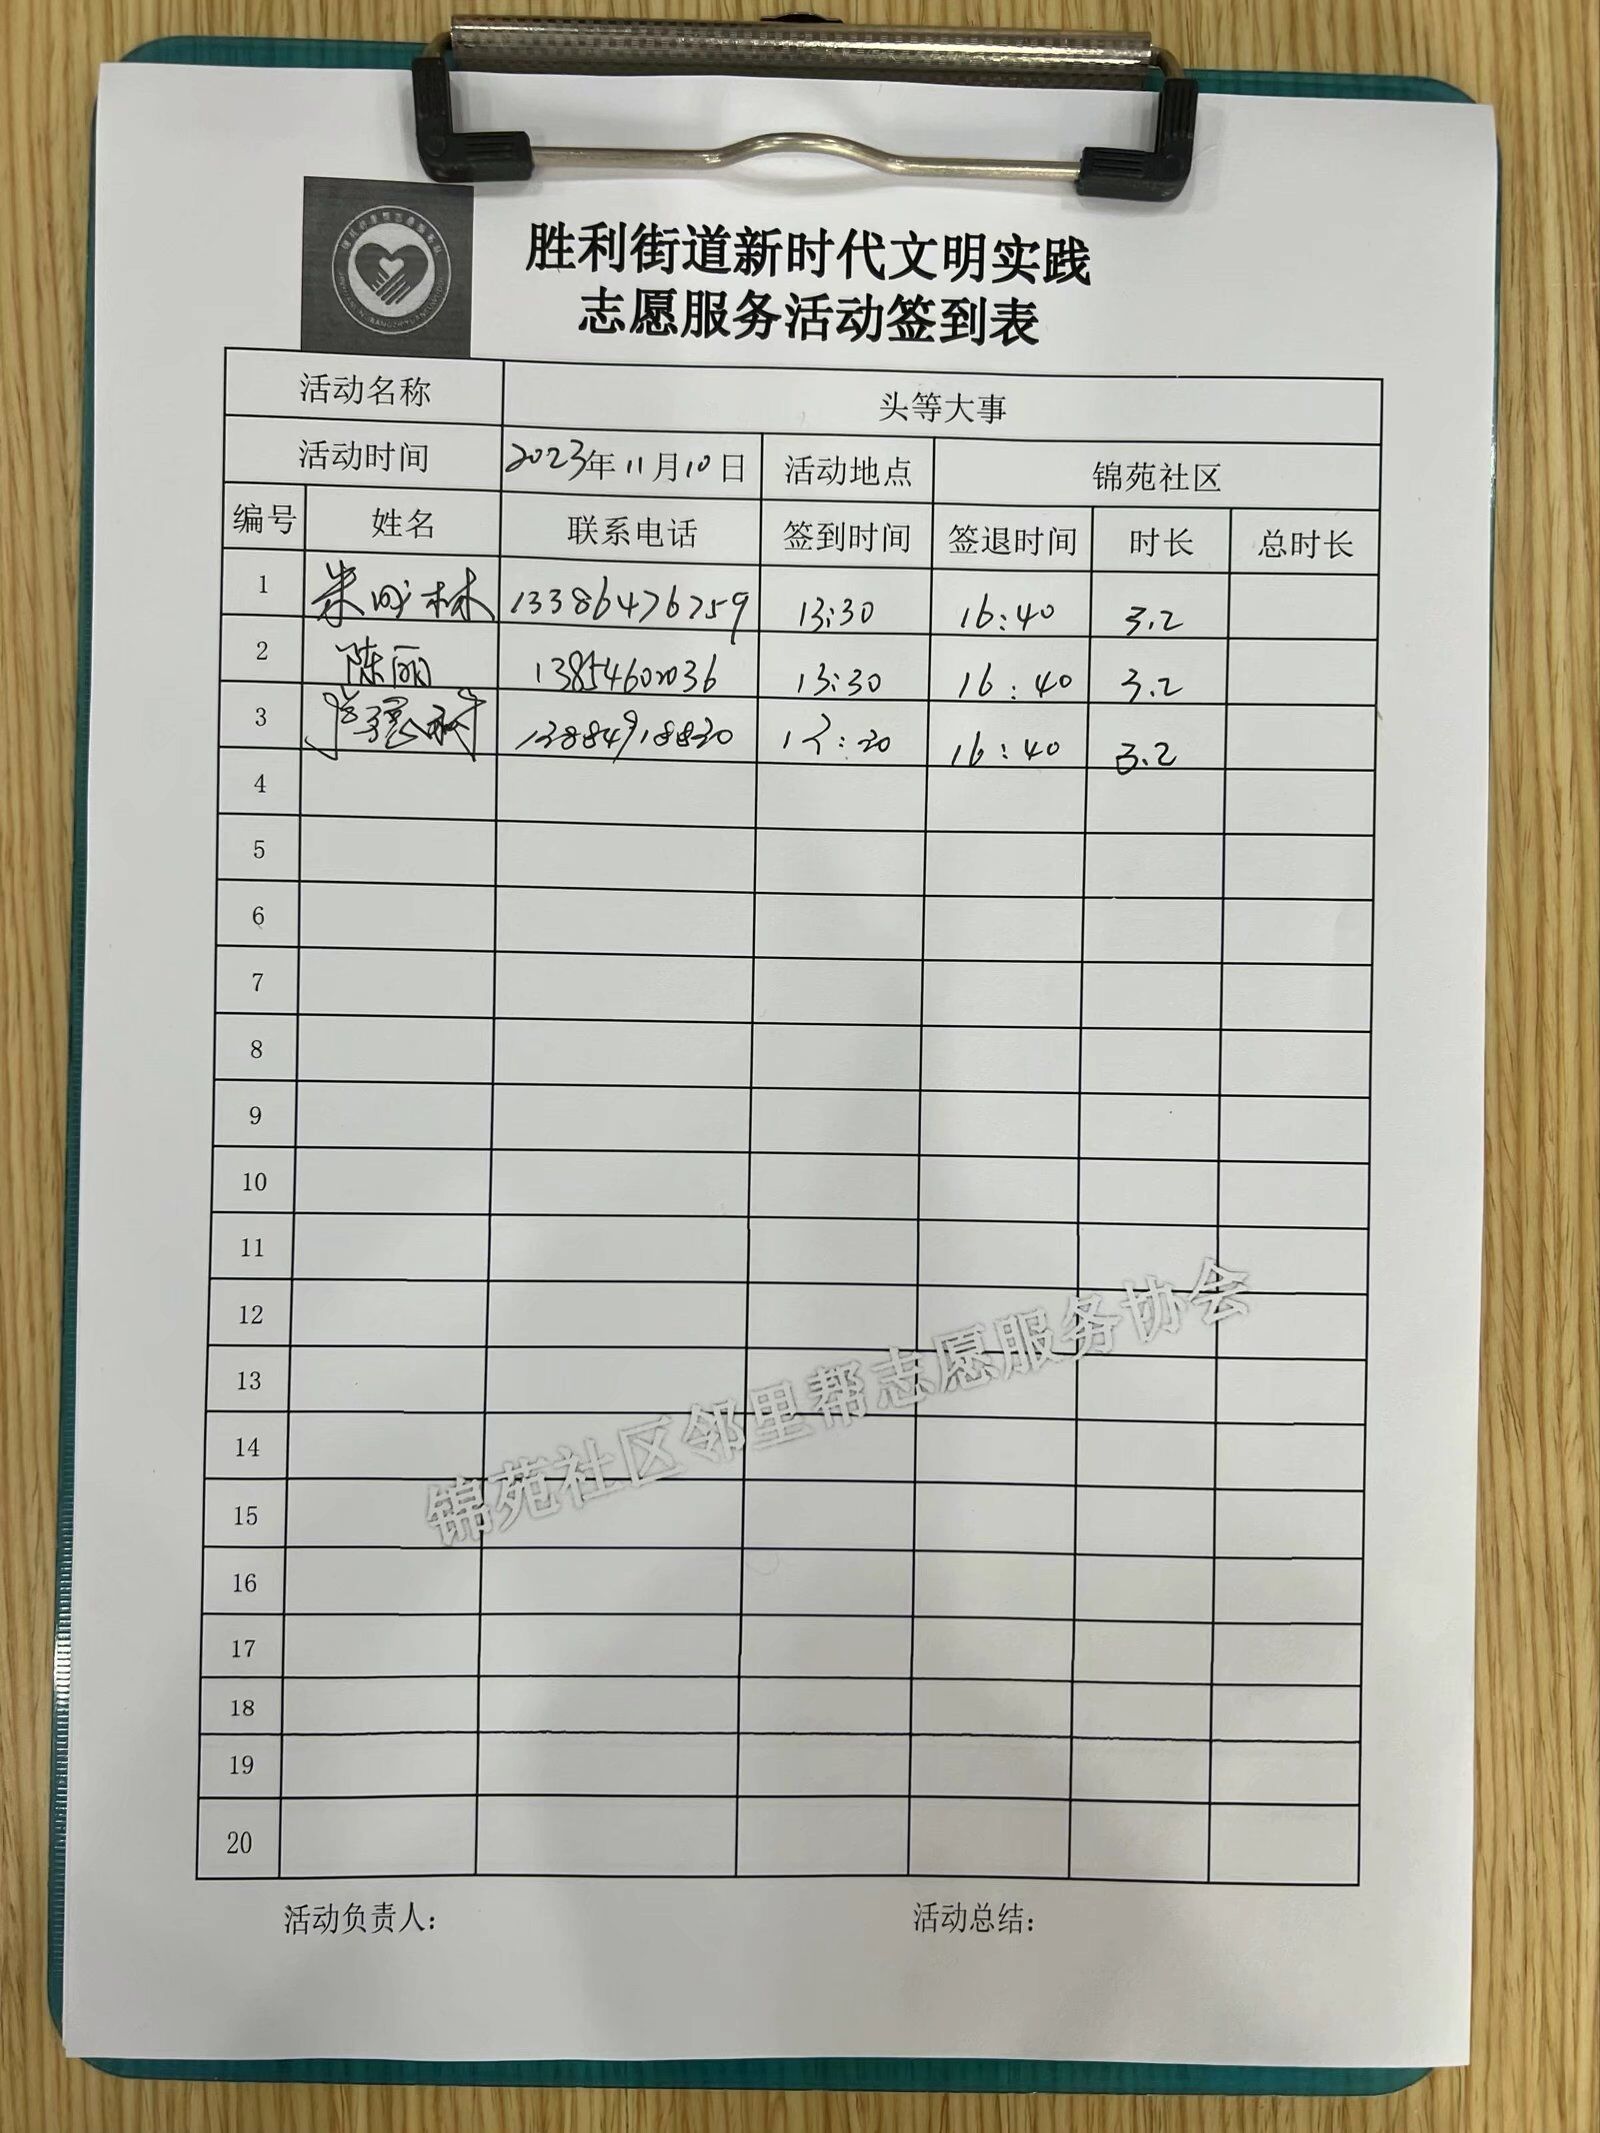 胜利街道新时代文明实践
志愿服务活动签到表
活动名称 头等大事
活动时间 2023年11月10日 活动地点 锦苑社区
编号 姓名 联系电话 签到时间 签退时间 时长 总时长
1 林 13386476759 13:30 16:40 3.2
2 陈丽 13854602036 13:30 16:40 3.2
3 13884918830 13:30 16:40 3.2
4
5
6
7
8
9
10
11
12
13
14
15
16
17
18
19
20
锦苑社区邻里帮志愿服务协会
活动负责人: 活动总结: